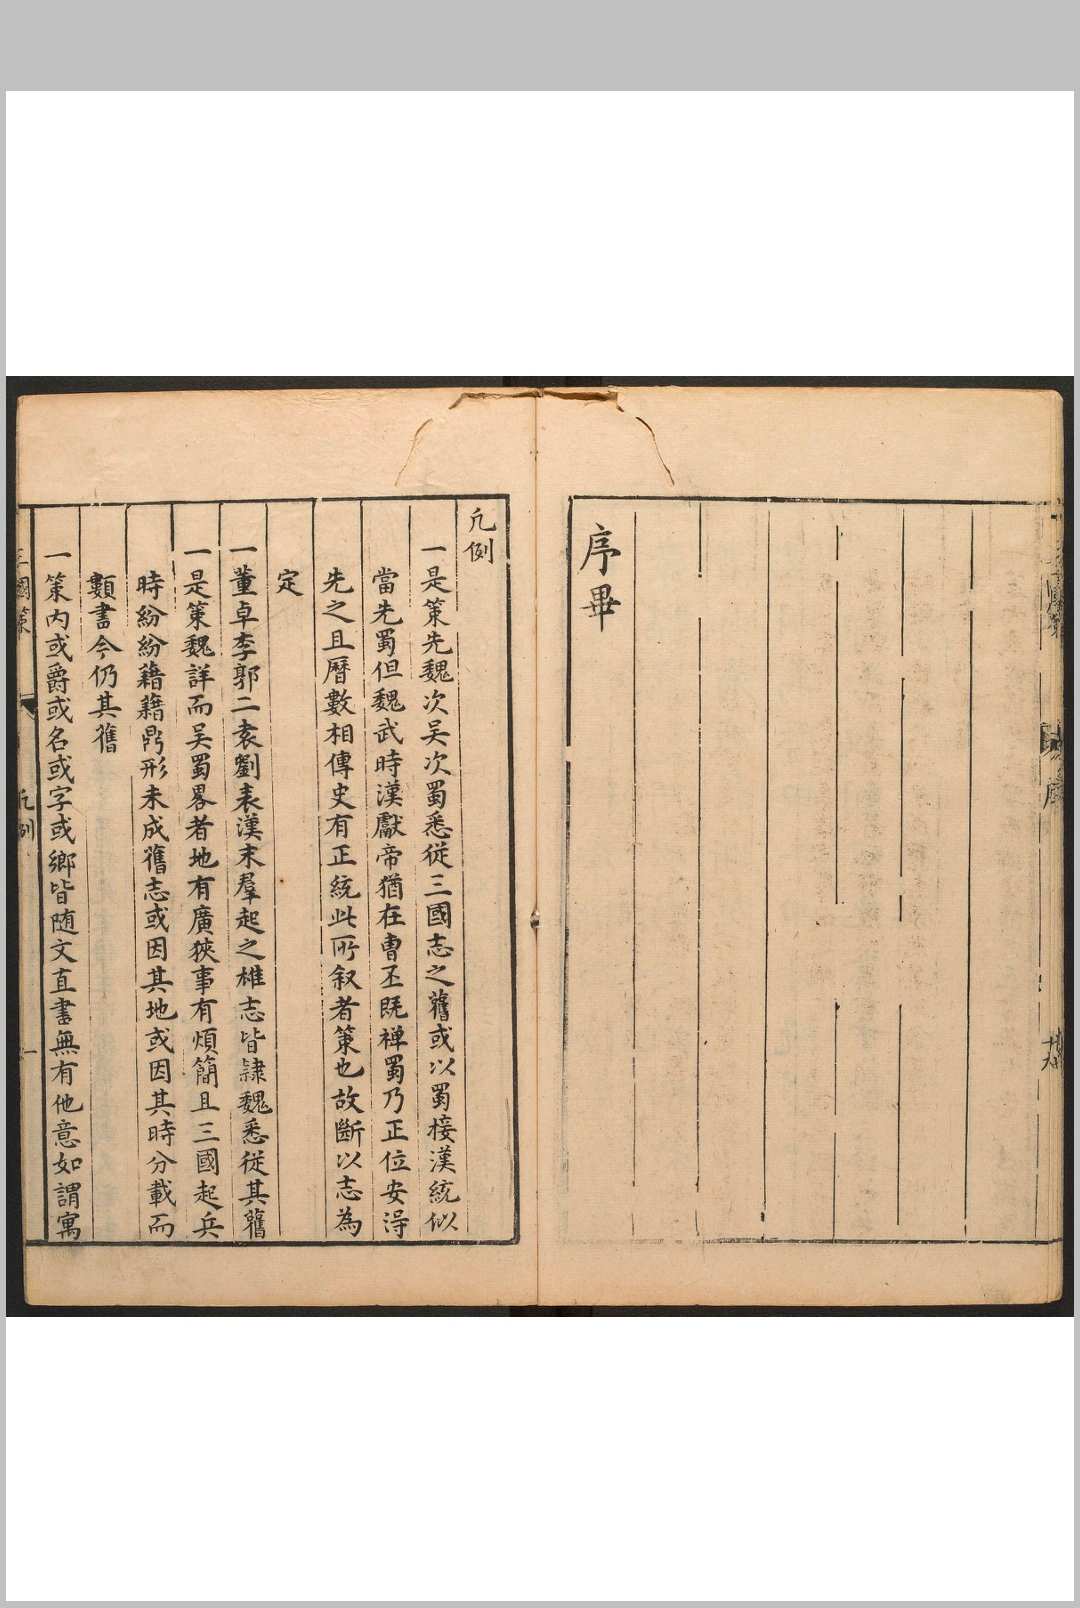 序畢
凡例
一是策先魏次吴次蜀悉從三國志之舊或以蜀接漢統似
當先蜀但魏武時漢獻帝猶在曹丕既禅蜀乃正位安得
先之且曆數相傳史有正統此所叙者策也故斷以志為
定
一董卓李郭二袁劉表漢末羣起之雄志皆隷魏悉從其舊
一是策魏詳而吴蜀畧者地有廣狹事有煩簡且三國起兵
時紛紛籍籍鼎形未成舊志或因其地或因其時分載而
數書今仍其舊
一策内或爵或名或字或鄉皆随文直書無有他意如謂寓
三國策
凡例
一